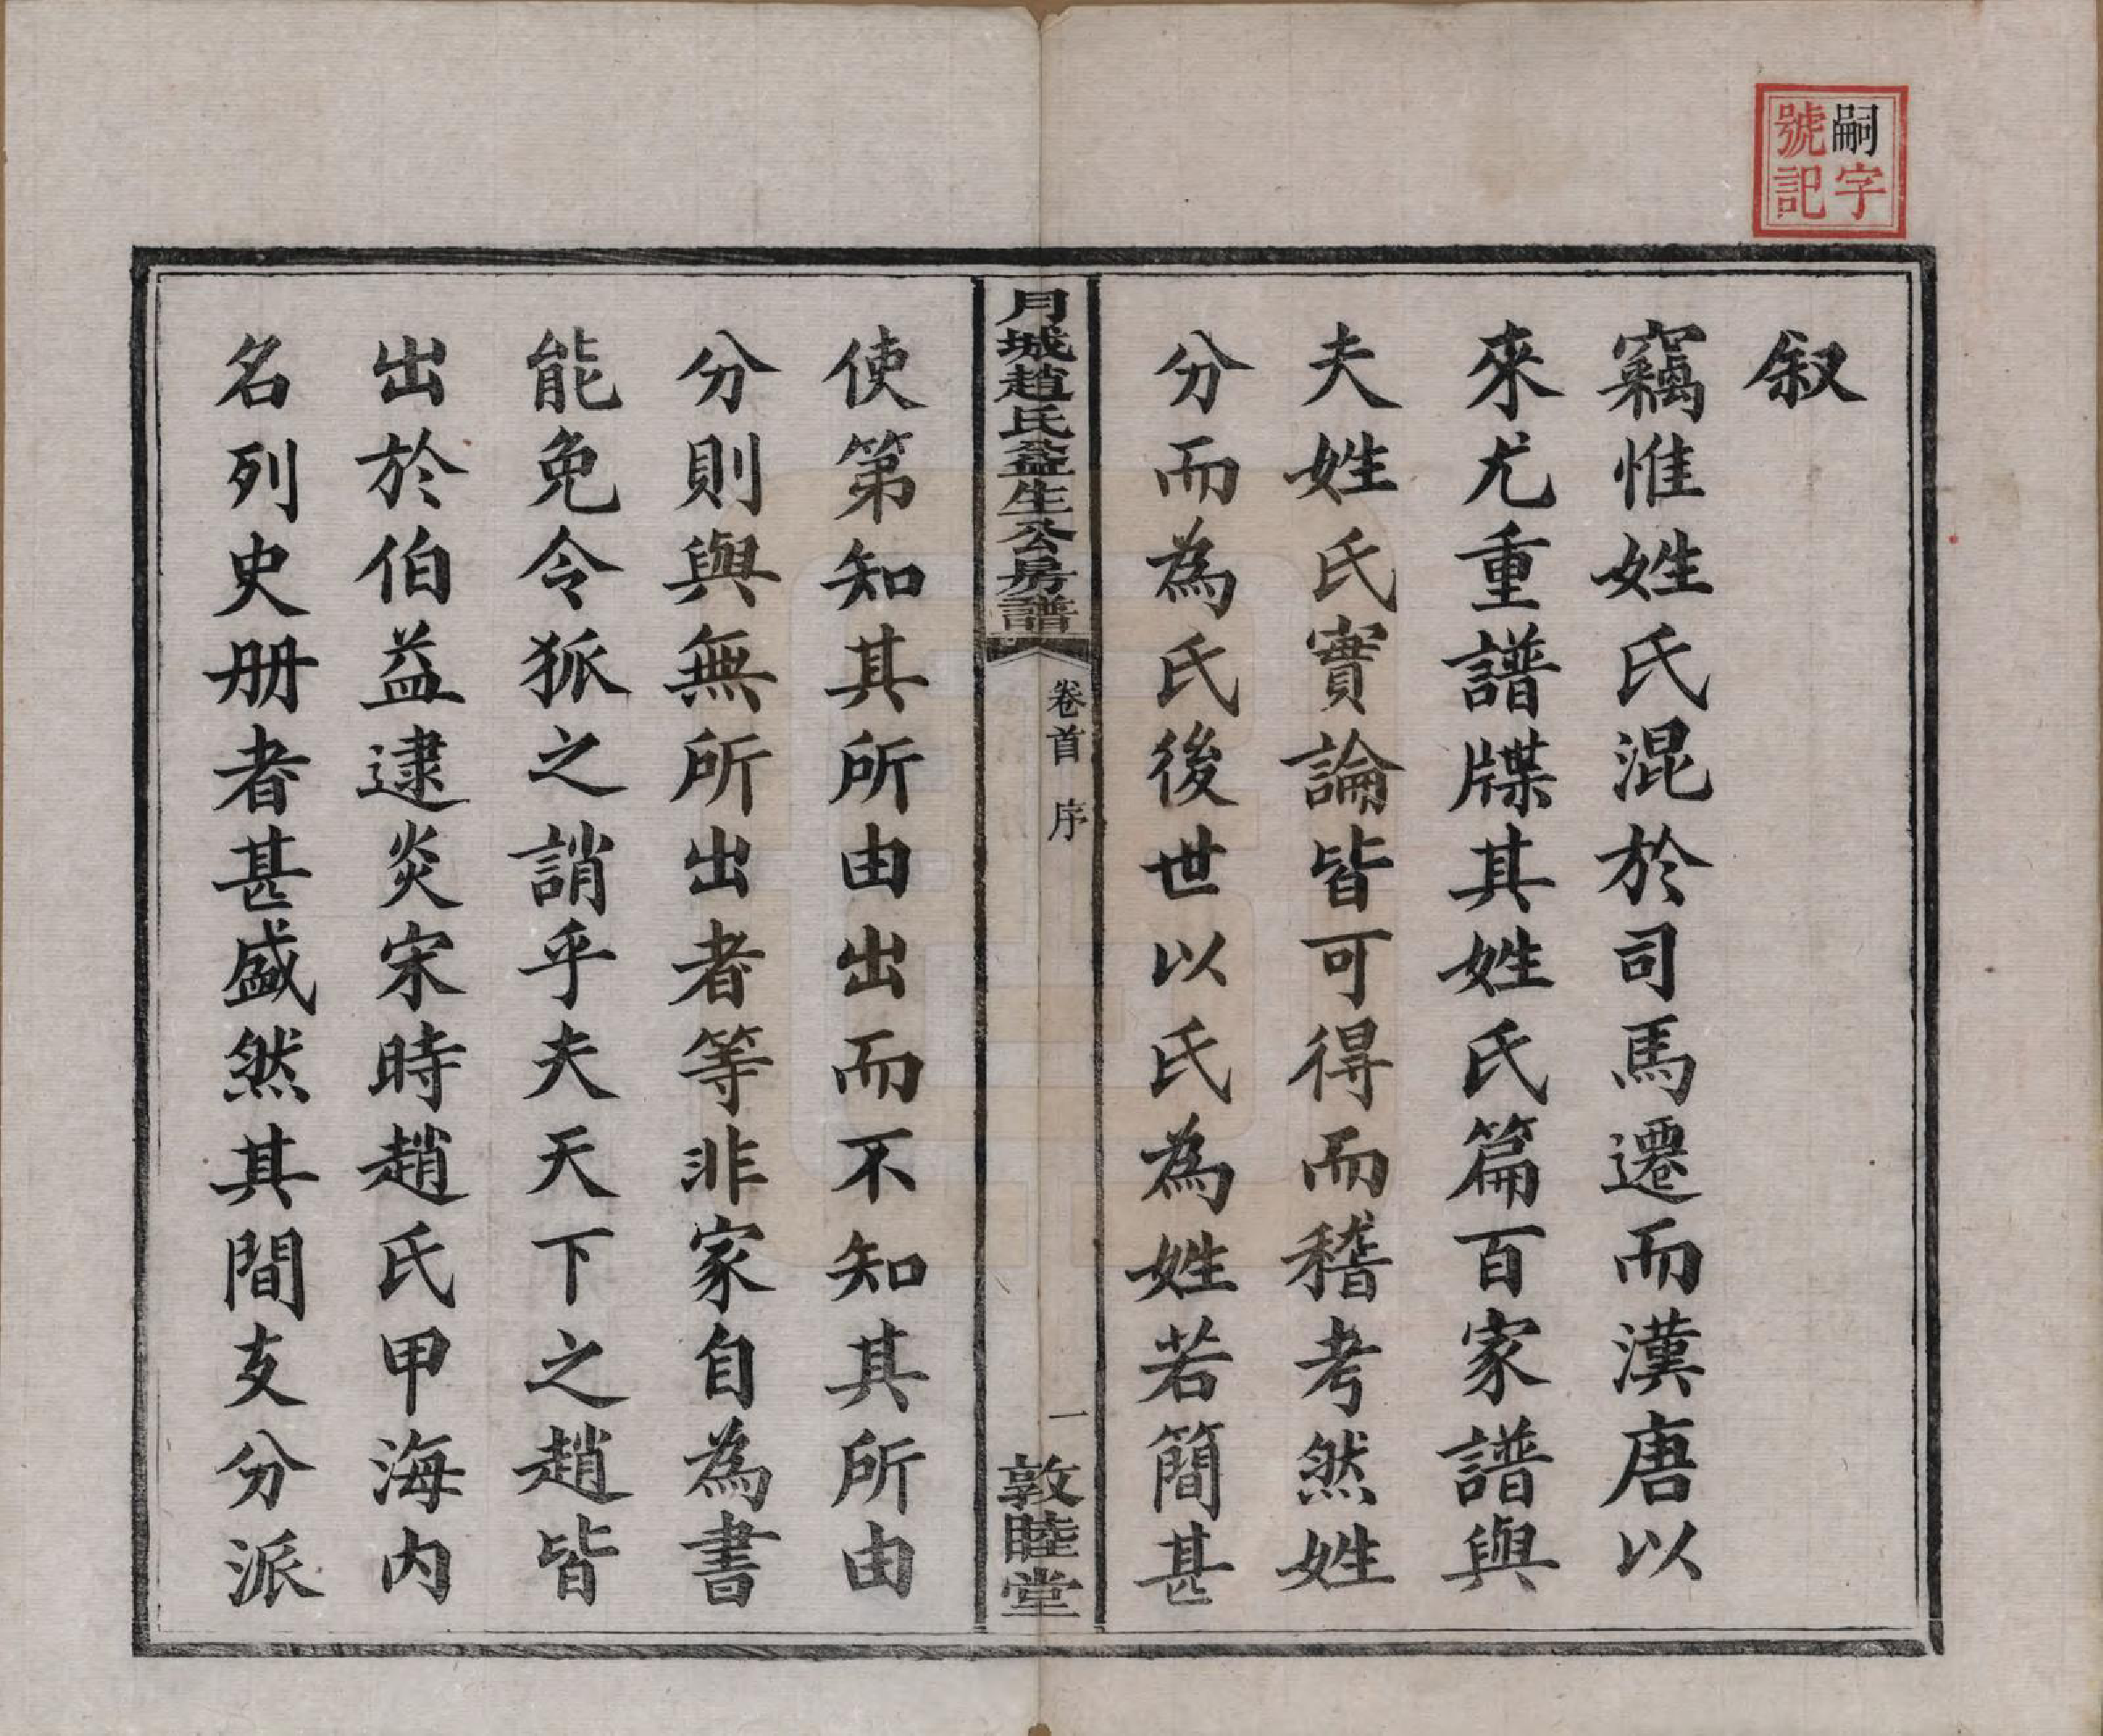 嗣字
號記
叙
竊惟姓氏混於司馬遷而漢唐以
來尤重譜牒其姓氏篇百家譜與
夫姓氏實論皆可得而稽考然姓
分而為氏後世以氏為姓若簡甚
月城趙氏益生公房譜
卷首 序
一
敦睦堂
使第知其所由出而不知其所由
分則與無所出者等非家自為書
能免令狐之誚乎夫天下之趙皆
出於伯益逮炎宋時趙氏甲海内
名列史册者甚盛然其間支分派